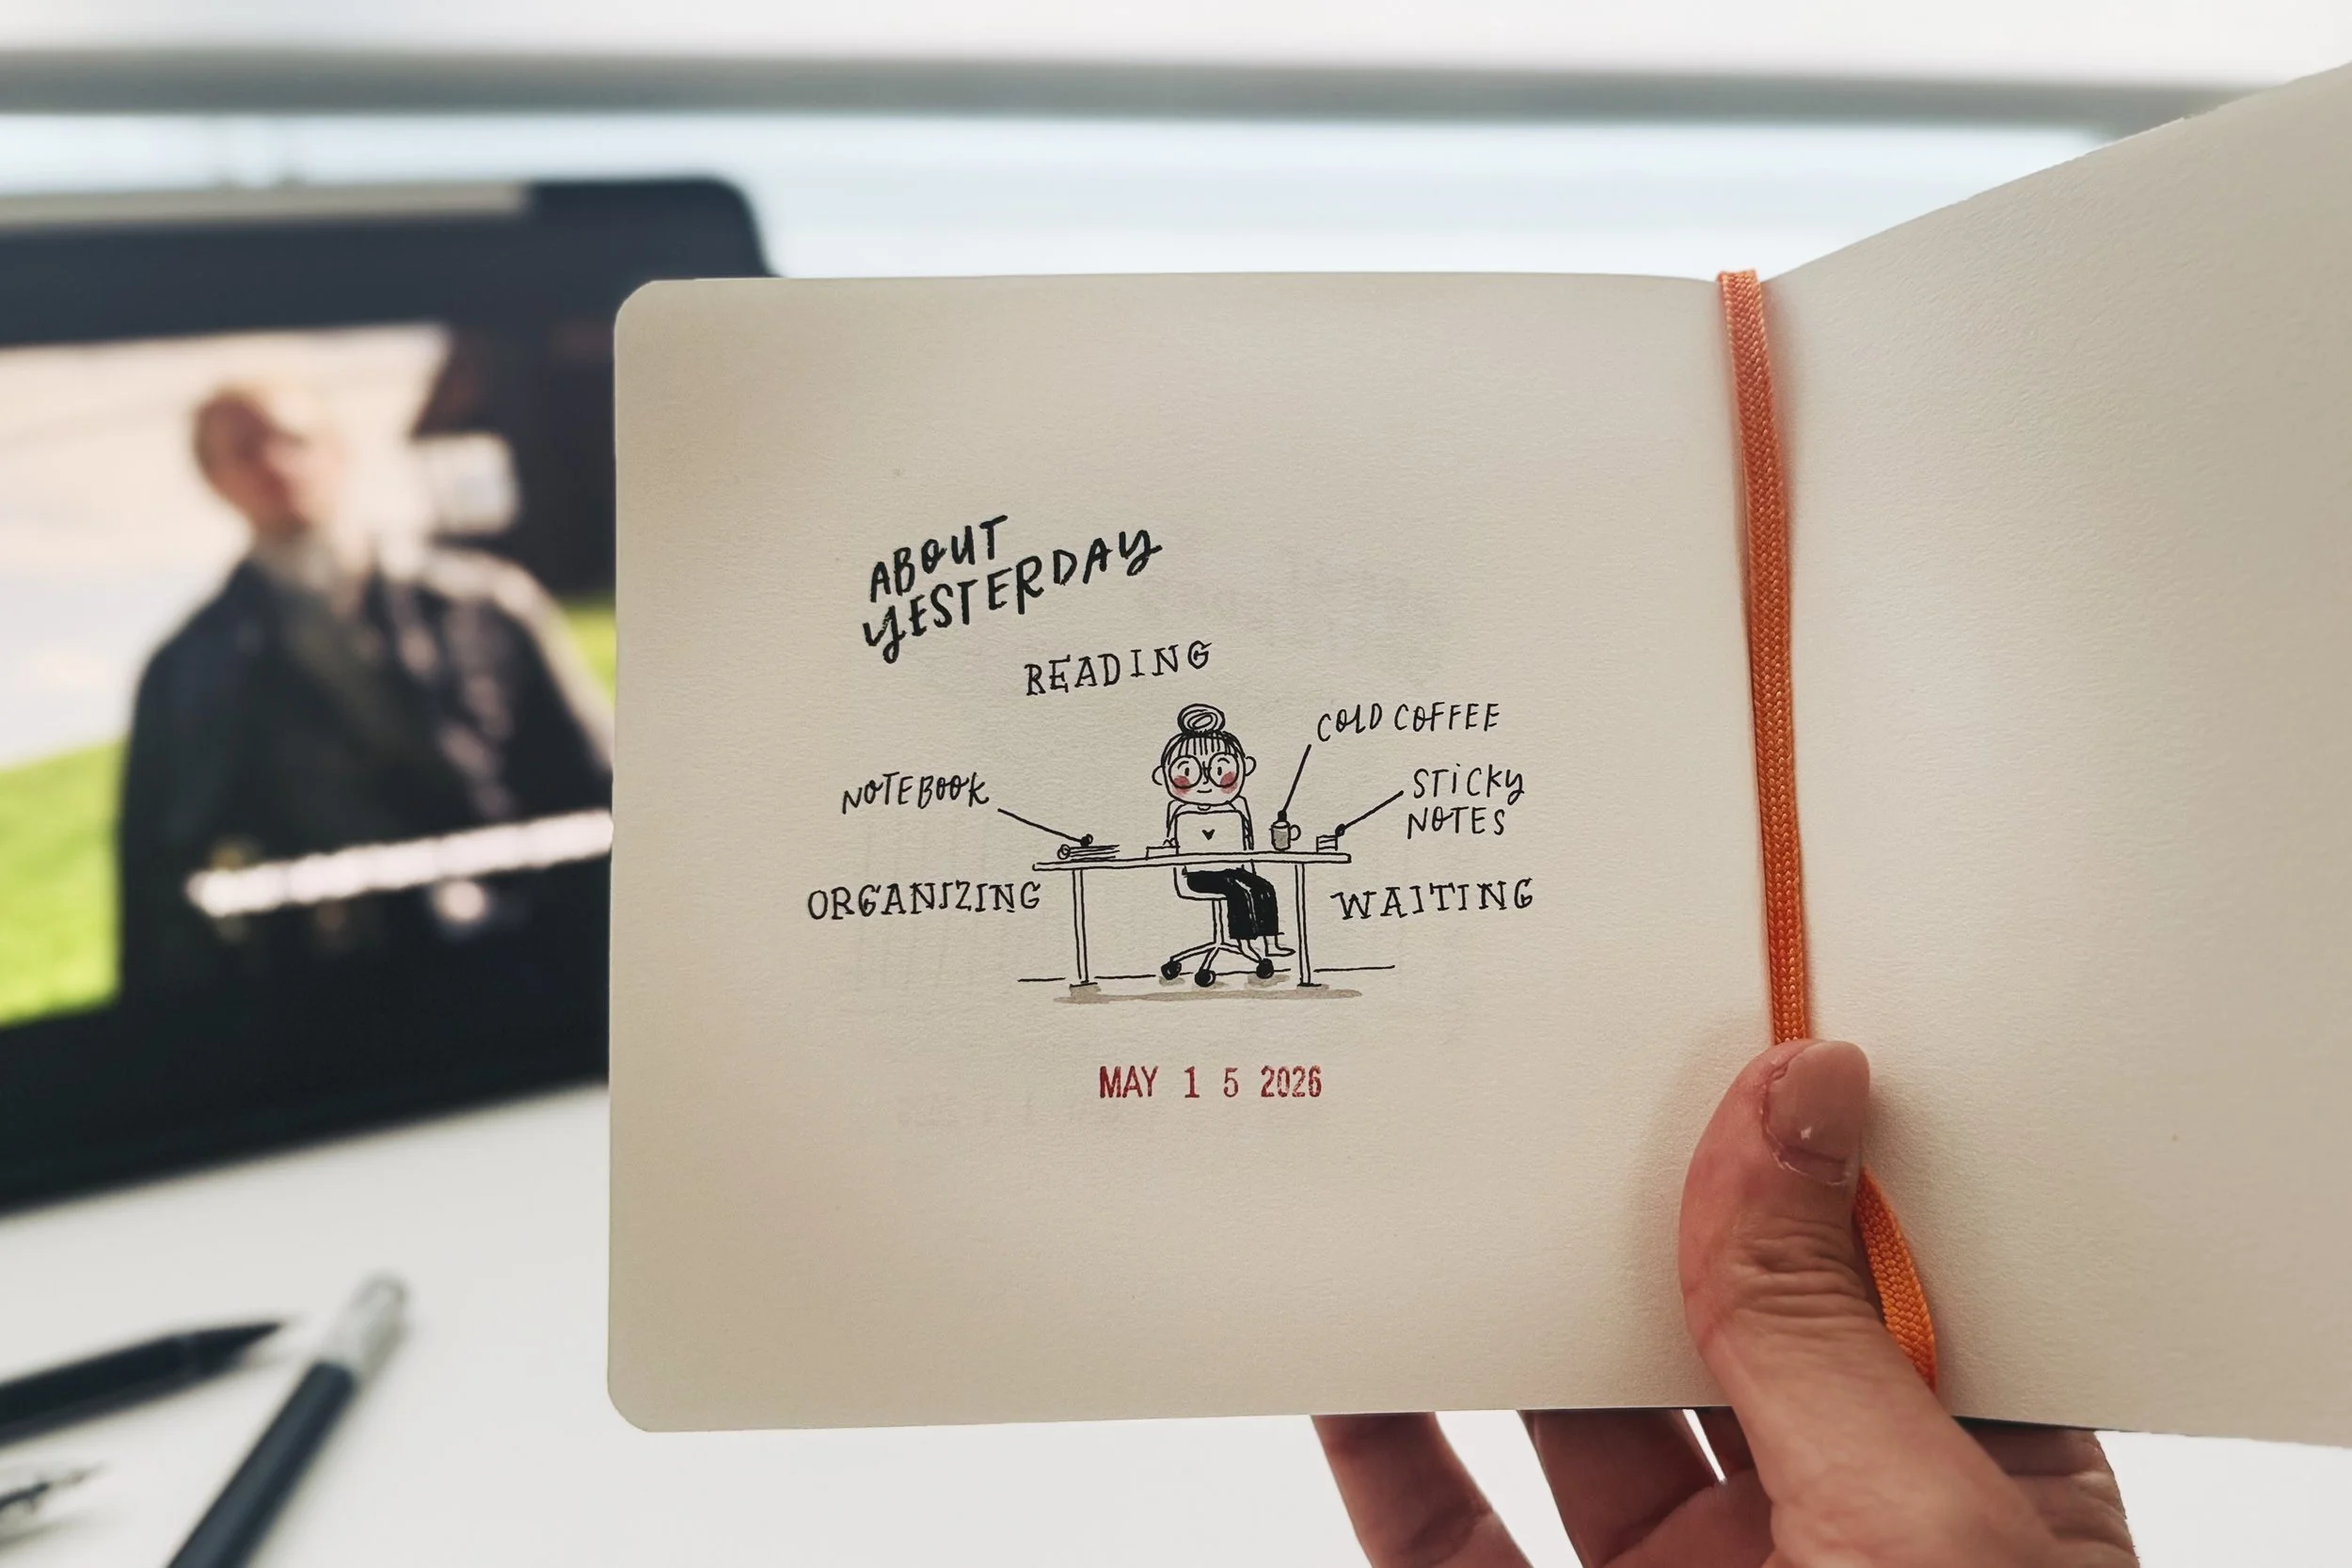 ABOUT
YESTERDAY
READING
COLD COFFEE
NOTEBOOK
STICKY
NOTES
ORGANIZING
WAITING
MAY 15 2026